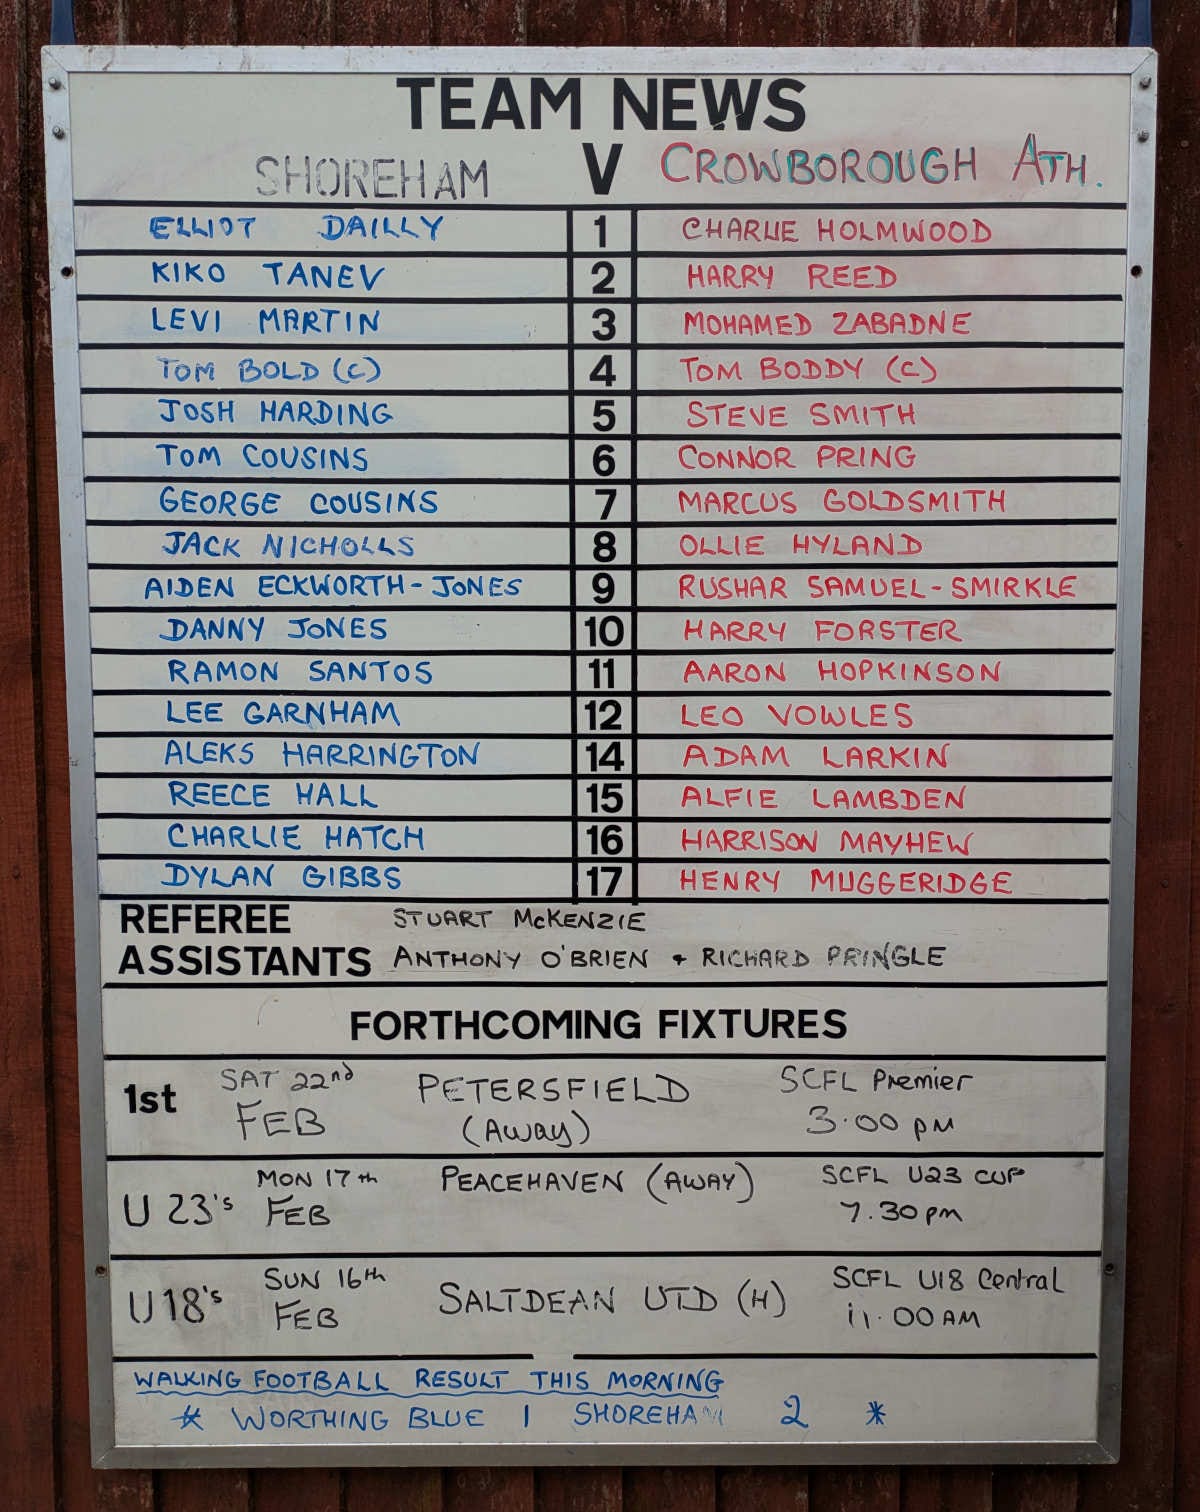 TEAM NEWS
SHOREHAM V CROWBOROUGH ATH.
ELLIOT DAILLY 1 CHARLIE HOLMWOOD
KIKO TANEV 2 HARRY REED
LEVI MARTIN 3 MOHAMED ZABADNE
TOM BOLD (C) 4 TOM BODDY (C)
JOSH HARDING 5 STEVE SMITH
TOM COUSINS 6 CONNOR PRING
GEORGE COUSINS 7 MARCUS GOLDSMITH
JACK NICHOLLS 8 OLLIE HYLAND
AIDEN ECKWORTH-JONES 9 RUSHAR SAMUEL-SMIRKLE
DANNY JONES 10 HARRY FORSTER
RAMON SANTOS 11 AARON HOPKINSON
LEE GARNHAM 12 LEO VOWLES
ALEKS HARRINGTON 14 ADAM LARKIN
REECE HALL 15 ALFIE LAMBDEN
CHARLIE HATCH 16 HARRISON MAYHEW
DYLAN GIBBS 17 HENRY MUGGERIDGE
REFEREE STUART McKENZIE
ASSISTANTS ANTHONY O'BRIEN + RICHARD PRINGLE
FORTHCOMING FIXTURES
1st SAT 22nd FEB PETERSFIELD (AWAY) SCFL Premier 3.00 pm
U 23's MON 17th FEB PEACEHAVEN (AWAY) SCFL U23 CUP 7.30pm
U18's SUN 16th FEB SALTDEAN UTD (H) SCFL U18 Central 11.00 AM
WALKING FOOTBALL RESULT THIS MORNING
* WORTHING BLUE 1 SHOREHAM 2 *